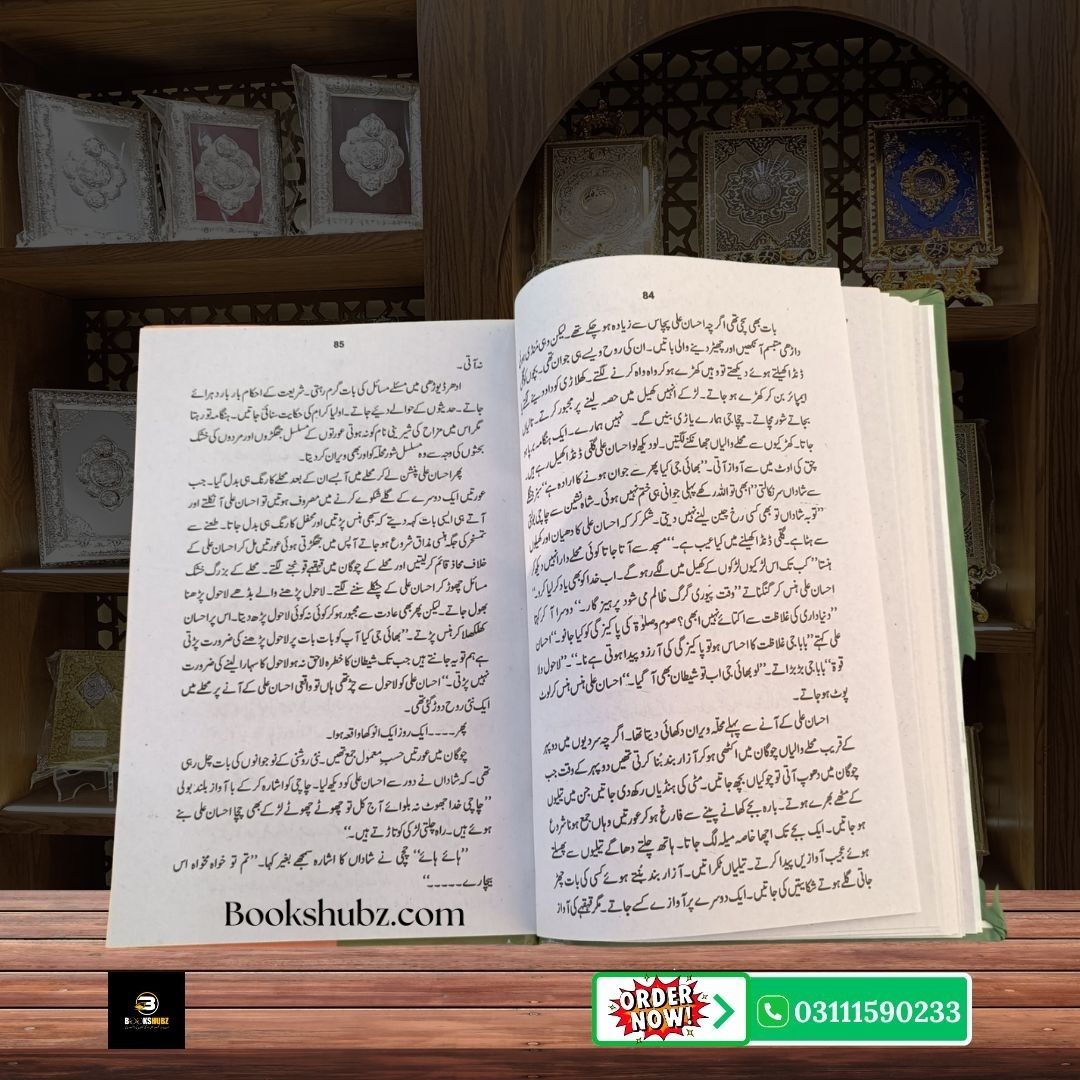 84
بات بھی سچی تھی اگرچہ احسان علی پچاس سے زیادہ ہو چکے تھے۔ لیکن وہی منڈی ہوئی
داڑھی متبسم آنکھیں اور چھیڑ دینے والی باتیں۔ ان کی روح ویسے ہی جوان تھی۔ بچوں کو گلی
ڈنڈا کھیلتے ہوئے دیکھتے تو وہیں کھڑے ہو کر واہ واہ کرنے لگتے۔ کھلاڑی کو داد دینے لگتے یا
ایمپائر بن کر کھڑے ہو جاتے۔ لڑکے انہیں کھیل میں حصہ لینے پر مجبور کرتے۔ تالیاں
بجاتے شور مچاتے۔ چچا جی ہمارے یاڑی بنیں گے۔ نہیں ہمارے۔ ایک ہنگامہ برپا ہو
جاتا۔ کھڑکیوں سے محلے والیاں جھانکنے لگتیں۔ لو دیکھ لو احسان علی گلی ڈنڈا کھیل رہے ہیں۔
چق کی اوٹ میں سے آواز آتی۔ ”بھائی جی کیا پھر سے جوان ہونے کا ارادہ ہے“ سبز جنگلے
سے شاداں سر نکالتی ”ابھی تو اللہ رکھے پہلی جوانی ہی ختم نہیں ہوئی۔ شاہ نشین سے چاچی بولتی
”توبہ شاداں تو بھی کسی رخ چین لینے نہیں دیتی۔ شکر کر کہ احسان علی کا دھیان اور کھیلوں
سے ہٹا ہے۔ گلی ڈنڈا کھیلنے میں کیا عیب ہے۔“ مسجد سے آتا جاتا کوئی محلے دار انہیں دیکھ کر
ہنستا ”کب تک اس لڑکیوں لڑکوں کے کھیل میں لگے رہو گے۔ اب خدا کو بھی یاد کر لیا کرو۔“
احسان علی ہنس کر گنگناتے ”وقت پیوری گرگ ظالم می شود پرہیز گار۔“ دوسرا آ کر کہتا
”دنیاداری کی غلاظت سے اکتائے نہیں ابھی؟ صوم و صلوٰة کی پاکیزگی کو کیا جانو۔“ احسان
علی کہتے ”بابا جی غلاظت کا احساس ہو تو پاکیزگی کی آرزو پیدا ہوتی ہے نا۔“ ۔ ”لاحول ولا
قوة“ بابا جی بڑبڑاتے۔ ”لو بھائی جی اب تو شیطان بھی آ گیا۔“ احسان علی ہنس ہنس کر لوٹ
پوٹ ہو جاتے۔
احسان علی کے آنے سے پہلے محلہ ویران دکھائی دیتا تھا۔ اگرچہ سردیوں میں دوپہر
کے قریب محلے والیاں چوگان میں اکٹھی ہو کر آزار بند بُنا کرتی تھیں دوپہر کے وقت جب
چوگان میں دھوپ آتی تو چوکیاں بچھ جاتیں۔ مٹی کی ہنڈیاں رکھ دی جاتیں جن میں تیلیوں
کے مٹھے بھرے ہوتے۔ بارہ بجے کھانے پینے سے فارغ ہو کر عورتیں وہاں جمع ہونا شروع
ہو جاتیں۔ ایک بجے تک اچھا خاصہ میلہ لگ جاتا۔ ہاتھ چلتے دھاگے تیلیوں سے پھسلتے
ہوئے عجیب آوازیں پیدا کرتے۔ تیلیاں ٹکراتیں۔ آزار بند بُنتے ہوئے کسی کی بات چھڑ
جاتی گلے ہوتے شکایتیں کی جاتیں۔ ایک دوسرے پر آوازے کسے جاتے۔ مگر قہقہے کی آواز
85
نہ آتی۔
ادھر ڈیوڑھی میں مسئلے مسائل کی بات گرم رہتی۔ شریعت کے احکام بار بار دہرائے
جاتے۔ حدیثوں کے حوالے دیئے جاتے۔ اولیا کرام کی حکایت سنائی جاتیں۔ ہنگامہ تو رہتا
مگر اس میں مزاح کی شیرینی نام کو نہ ہوتی عورتوں کے مسلسل جھگڑوں اور مردوں کی خشک
بحثوں کی وجہ سے وہ مسلسل شور محلہ کو اور بھی ویران کر دیتا۔
پھر احسان علی پنشن لے کر محلے میں آ بسے ان کے بعد محلے کا رنگ ہی بدل گیا۔ جب
عورتیں ایک دوسرے کے گلے شکوے کرنے میں مصروف ہوتیں تو احسان علی آ نکلتے اور
آتے ہی ایسی بات کہہ دیتے کہ سبھی ہنس پڑتیں اور محفل کا رنگ ہی بدل جاتا۔ طعنے سے
تمسخر کی جگہ ہنسی مذاق شروع ہو جاتے آپس میں جھگڑتی ہوئی عورتیں مل کر احسان علی کے
خلاف محاذ قائم کر لیتیں اور محلے کے چوگان میں قہقہے گونجنے لگتے۔ محلے کے بزرگ خشک
مسائل چھوڑ کر احسان علی کے چٹکلے سننے لگتے۔ لاحول پڑھنے والے بڈھے لاحول پڑھنا
بھول جاتے۔ لیکن پھر بھی عادت سے مجبور ہو کر کوئی نہ کوئی لاحول پڑھ دیتا۔ اس پر احسان
کھلکھلا کر ہنس پڑتے۔ ”بھائی جی کیا آپ کو بات بات پر لاحول پڑھنے کی ضرورت پڑتی
ہے ہم تو یہ جانتے ہیں جب تک شیطان کا خطرہ لاحق نہ ہو لاحول کا سہارا لینے کی ضرورت
نہیں پڑتی۔“ احسان علی کو لاحول سے چڑ تھی ہاں تو واقعی احسان علی کے آنے پر محلے میں
ایک نئی روح دوڑ گئی تھی۔
پھر ۔۔۔۔ ایک روز ایک انوکھا واقعہ ہوا۔
چوگان میں عورتیں حسبِ معمول جمع تھیں۔ نئی روشنی کے نوجوانوں کی بات چل رہی
تھی۔ کہ شاداں نے دور سے احسان علی کو دیکھ لیا۔ چاچی کو اشارہ کر کے با آواز بلند بولی
”چاچی خدا جھوٹ نہ بلوائے آج کل تو چھوٹے چھوٹے لڑکے بھی چچا احسان علی بنے
ہوئے ہیں۔ راہ چلتی لڑکی کو تاڑتے ہیں۔“
”ہائے ہائے“ چچی نے شاداں کا اشارہ سمجھے بغیر کہا۔ ”تم تو خواہ مخواہ اس
بیچارے ۔۔۔۔۔“
Bookshubz.com
BOOKSHUBZ
ORDER
NOW!
03111590233